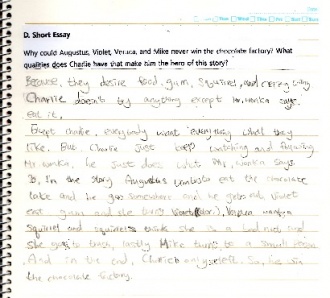 D. Short Essay
Why could Augustus, Violet, Veruca, and Mike never win the chocolate factory? What
qualities does Charlie have that make him the hero of this story?
Because, they desire food, gum, squirrel, and everything
Charlie doesn't try anything except Mr. wonka says
eat it.
Except charlie, everybody want everything what they
like. But Charlie just keep watching and
Mr wonka, he just does what Mr, wonka says
In the story Augustus eat the chocolate
lake and he go somewhere and he gets out, Violet
eat gum and she turns Violet(color), Veruca wants a
squirrel and squirrels think she is a bad nut and
she goes to trash, lastly Mike turns to a small
And in the end, Charlie only left. So, he win
the chocolate factory.